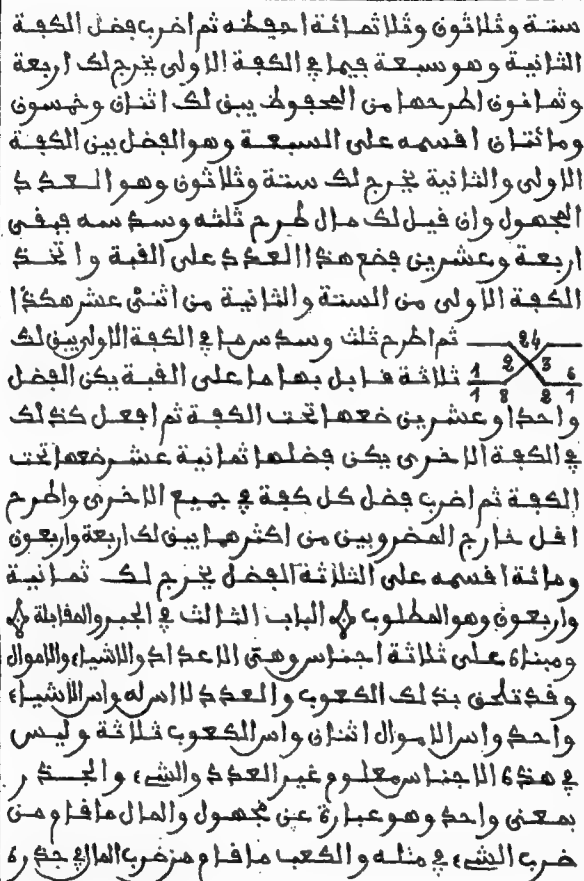 ستة وثلاثون وثلاثمائة احفظه ثم اضرب فضل الكفة
الثانية وهو سبعة فيما في الكفة الاولى يخرج لك اربعة
وثمانون اطرحها من المحفوظ يبق لك اثنان وخمسون
ومائتان اقسمه على السبعة وهو الفضل بين الكفة
الاولى والثانية يخرج لك ستة وثلاثون وهو العدد
المجهول وان قيل لك مال طرح ثلثه وسدسه فبقى
اربعة وعشرين فضع هذا العدد على القبة واتخذ
الكفة الاولى من الستة والثانية من اثنى عشر هكذا
ثم اطرح ثلث وسدس ما في الكفة الاولى يبق لك 24
ثلاثة قابل بها ما على القبة يكن الفضل 1 2 3 6
واحدا وعشرين ضعها تحت الكفة ثم افعل كذلك 1 8 2 1
في الكفة الاخرى يكن فضلها ثمانية عشر ضعها تحت
الكفة ثم اضرب فضل كل كفة في جميع الاخرى واطرح
اقل خارج المضروبين من اكثرهما يبق لك اربعة واربعون
ومائة اقسمه على الثلاثة الفضل يخرج لك ثمانية
واربعون وهو المطلوب الباب الثالث في الجبر والمقابلة
ومبناه على ثلاثة اجناس وهى الاعداد والاشياء والاموال
وقد تلحق بذلك الكعوب والعدد لا اس له واس الاشياء
واحد واس الاموال اثنان واس الكعوب ثلاثة وليس
في هذه الاجناس معلوم غير العدد والشيء والجذر
بمعنى واحد وهو عبارة عن مجهول والمال ما قام من
ضرب الشيء في مثله والكعب ما قام من ضرب المال في جذره